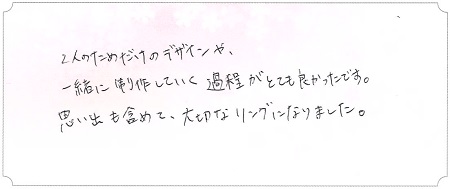 2人のためだけのデザインや、
一緒に制作していく過程がとても良かったです。
思い出も含めて、大切なリングになりました。